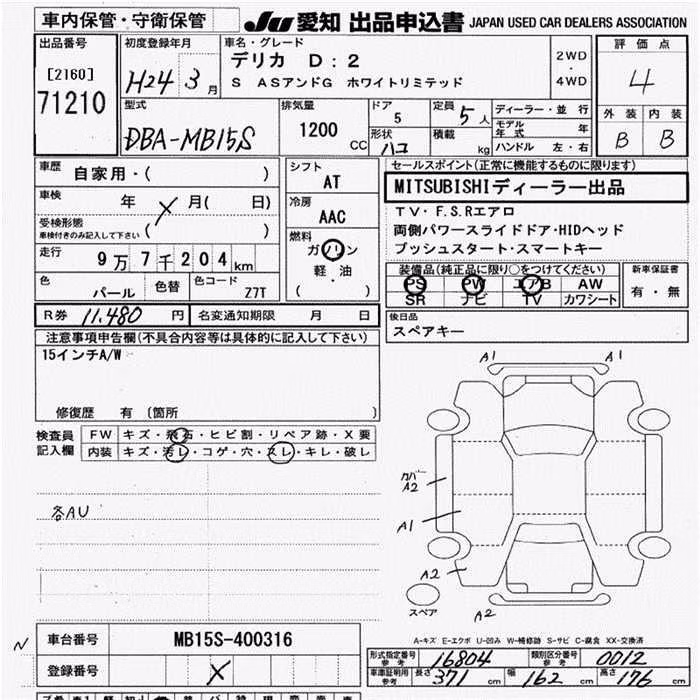 車内保管・守衛保管
JU 愛知 出品申込書 JAPAN USED CAR DEALERS ASSOCIATION
出品番号
[2160]
71210
初度登録年月
H24 3月
車名・グレード
デリカ D:2
S ASアンドG ホワイトリミテッド
2WD
・
4WD
評価点
4
外装 内装
B B
型式
DBA-MB15S
排気量
1200 CC
ドア
5
形状
ハコ
定員
5人
積載
kg
ディーラー・並行
モデル年式 年
ハンドル 左・右
車歴
自家用・( )
車検
年 X 月( 日)
受検形態
車検付きのみ記入して下さい ( )
走行
9万7千204km
色
パール
色替
色コード
Z7T
シフト
AT
冷房
AAC
燃料
ガソリン
軽・油
( )
セールスポイント(正常に機能するものに限ります)
MITSUBISHIディーラー出品
TV・F.S.Rエアロ
両側パワースライドドア・HIDヘッド
プッシュスタート・スマートキー
装備品(純正品に限り○をつけてください)
PS PW エアB AW
SR ナビ TV カワシート
新車保証書
有・無
後日品
スペアキー
R券 11,480 円
名変通知期限 月 日
注意事項申告欄(不具合内容等は具体的に記入して下さい)
15インチA/W
修復歴 有 (箇所 )
検査員
記入欄
FW キズ・飛石・ヒビ割・リペア跡・X要
内装 キズ・汚レ・コゲ・穴・スレ・キレ・破レ
各AU
A1 A1
カバー
A2
A1
A2
スペア
A2
A-キズ E-エクボ U-凹み W-補修跡 S-サビ C-腐食 XX-交換済
N
車台番号
MB15S-400316
登録番号
X
形式指定番号
参考
16804
類別区分番号
参考
0012
車庫証明用
参考
長さ 371 cm
幅 162 cm
高さ 176 cm